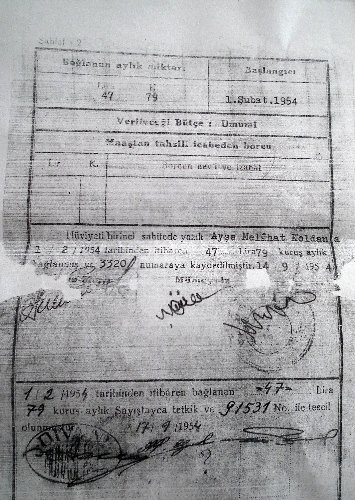 Sahife : 2
Bağlanan aylık miktarı Başlangıcı
L. K.
47 79 1.Şubat.1954
Verileceği Bütçe : Umumi
Maaştan tahsili icabeden borcu
Lr K. Borcun nev'i ve izahı
Hüviyeti birinci sahifede yazılı Ayşe Melahat Koldan'a
1 - 2 /1954 tarihinden itibaren 47 Lira 79 kuruş aylık
bağlanmış ve 3320 numaraya kaydedilmiştir. 14 / 9 /1954
1/2/1954 tarihinden itibaren bağlanan -47- Lira
79 kuruş aylık Sayıştayca tetkik ve 91531 No. ile tescil
olunmuştur. 17/9/1954